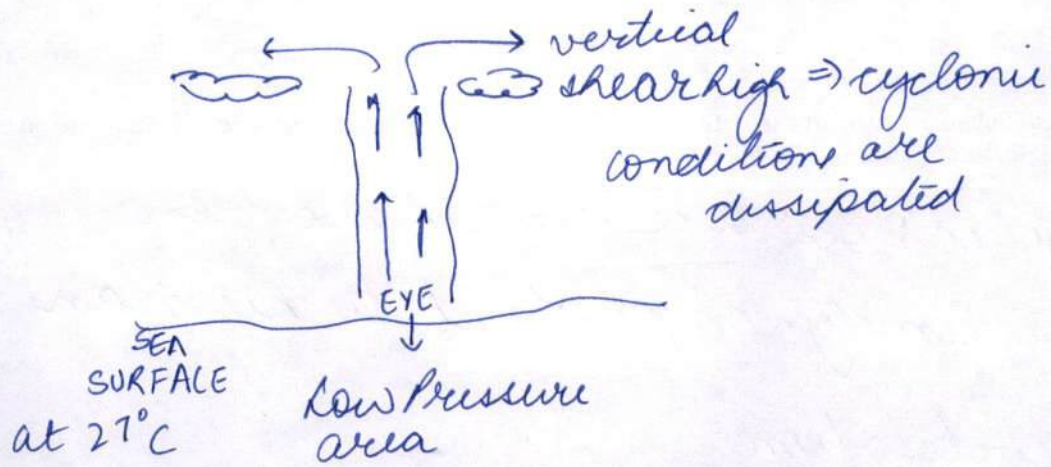 vertical
shear high ⇒ cyclonic
conditions are
dissipated
EYE
SEA
SURFACE
at 27°C
Low Pressure
area